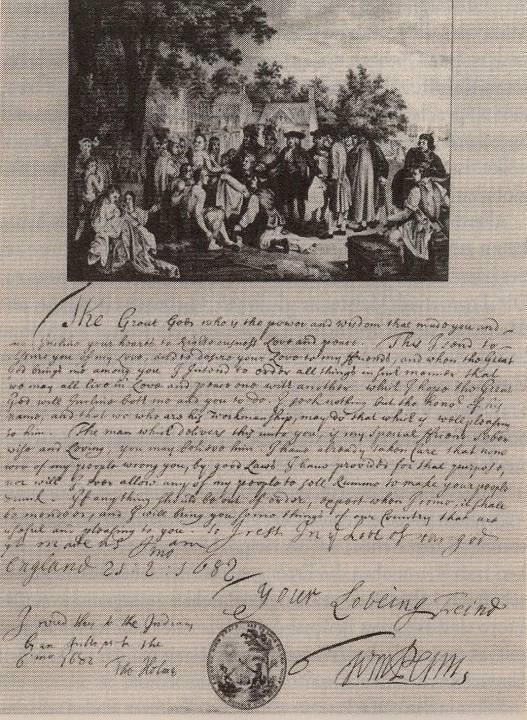 The Great God who is the power and wisdom that made you and
me Incline your hearts to Righteousness Love and peace. This I send to
Assure you of my Love, and to desire your Love to my ffriends, and when the Great
God brings me among you I Intend to order all things in such manner that
we may all live in Love and peace one with another which I hope the Great
God will Incline both me and you to do. I seek nothing but the honor of his
name, and that we who are his workmanship, may do that which is well pleasing
to him. The man which delivers this unto you, is my special ffriend Sober
wise and Loving, you may believe him. I have already taken Care that none
of my people wrong you, by good Laws I have provided for that purpose,
nor will I ever allow any of my people to sell Rumme to make your people
drunk. If any thing should be out of order, expect when I come, it shall
be mended, and I will bring you some things of our Country that are
useful and pleasing to you. So I rest In ye Love of our god
yt made us I am
England 21: 2: 1682
Your Loveing Freind
I read this to the Indians
by an Interpreter the
6 mo 1682
Tho Holme
Wm Penn